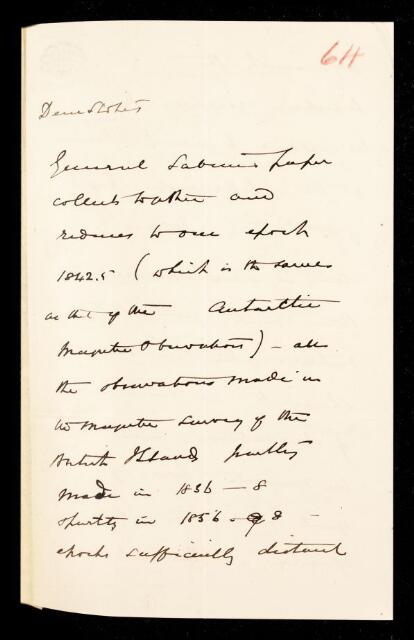 64
Dear Stokes
General Sabine's paper
collects together and
reduces to one epoch
1842.5 (which is the same
as that of the Antarctic
Magnetic Observations) – all
the observations made in
the magnetic survey of the
British Islands partly
made in 1836 – 8
& partly in 1856 – 8 –
epochs sufficiently distant